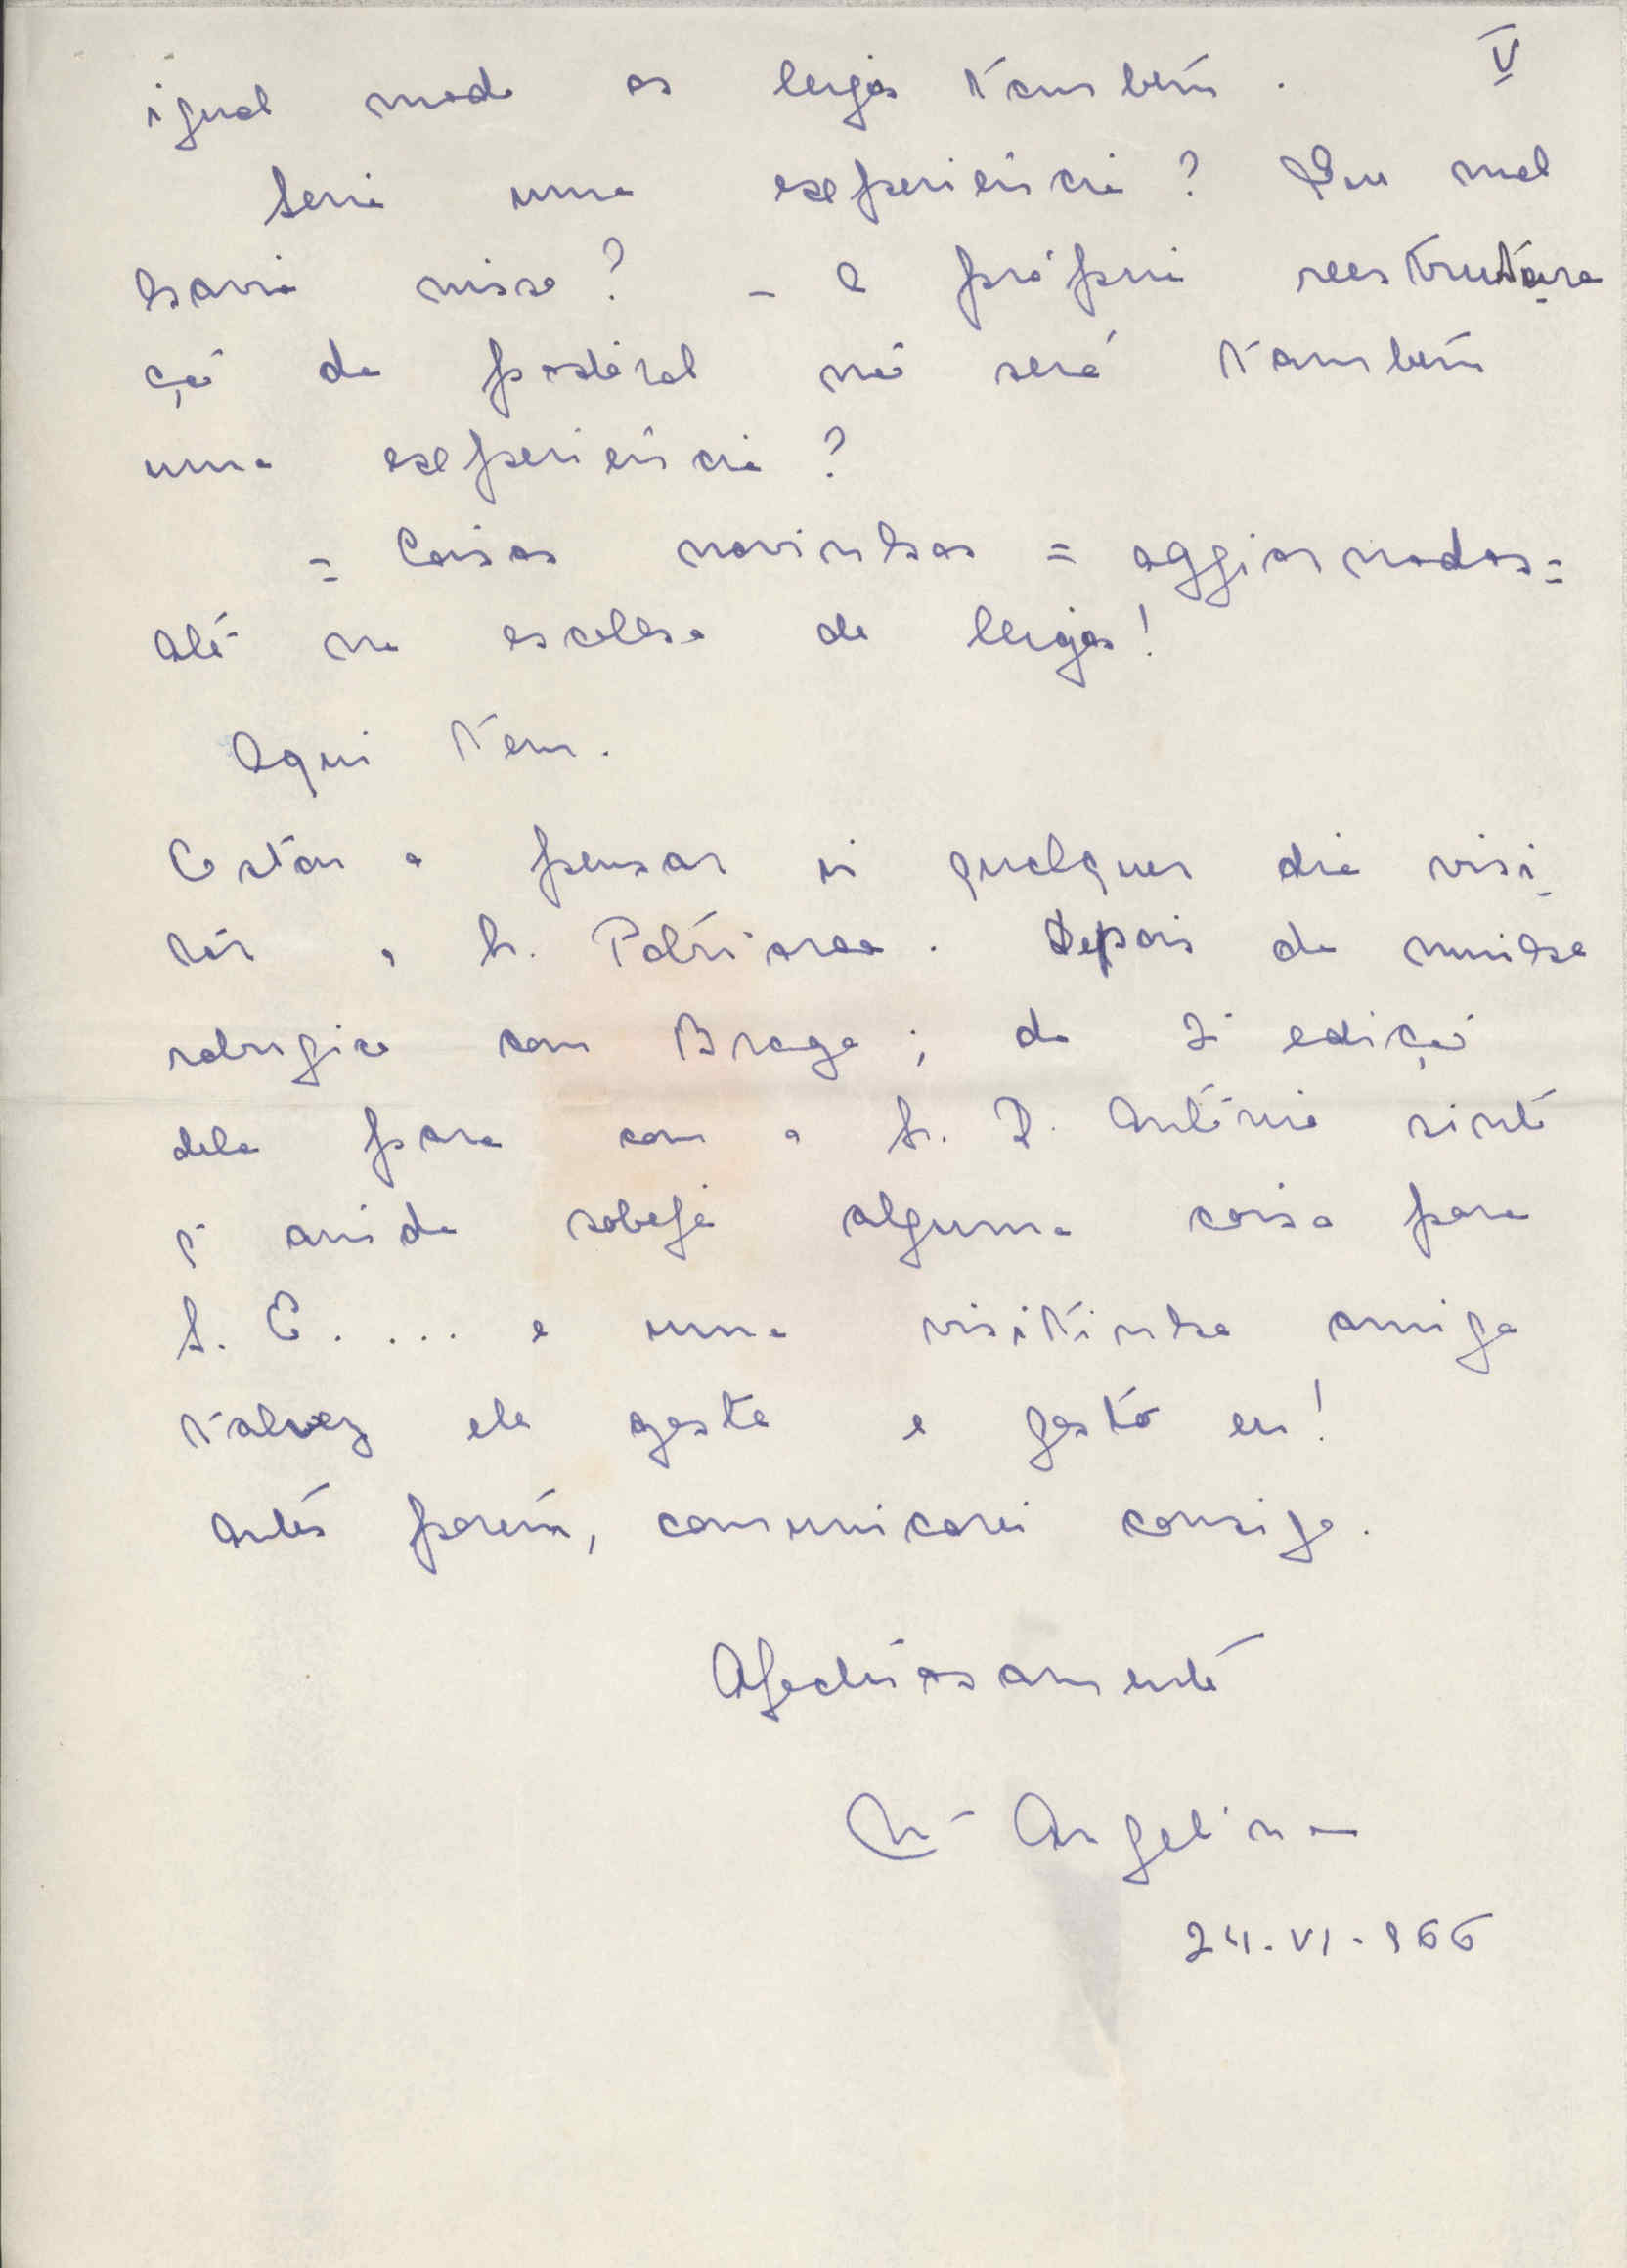 V
igual modo os leigos também.
Seria uma experiência? Que mal
havia nisso? - A própria reestrutura
ção da pastoral não será também
uma experiência?
= Coisas novinhas = aggiornadas =
até na escolha de leigos!
Aqui tem.
Estou a pensar ir qualquer dia visi
tar o Sr. Patriarca. Depois da minha
com Braga; da 2ª edição
dela para com o Sr. D. António sinto
q ainda sobeja alguma coisa para
S. E. ... e uma visitinha amiga
talvez ele goste e gosto eu!
Antes porém, comunicarei consigo.
Afectuosamente
Mª Angelina
24-VI-966